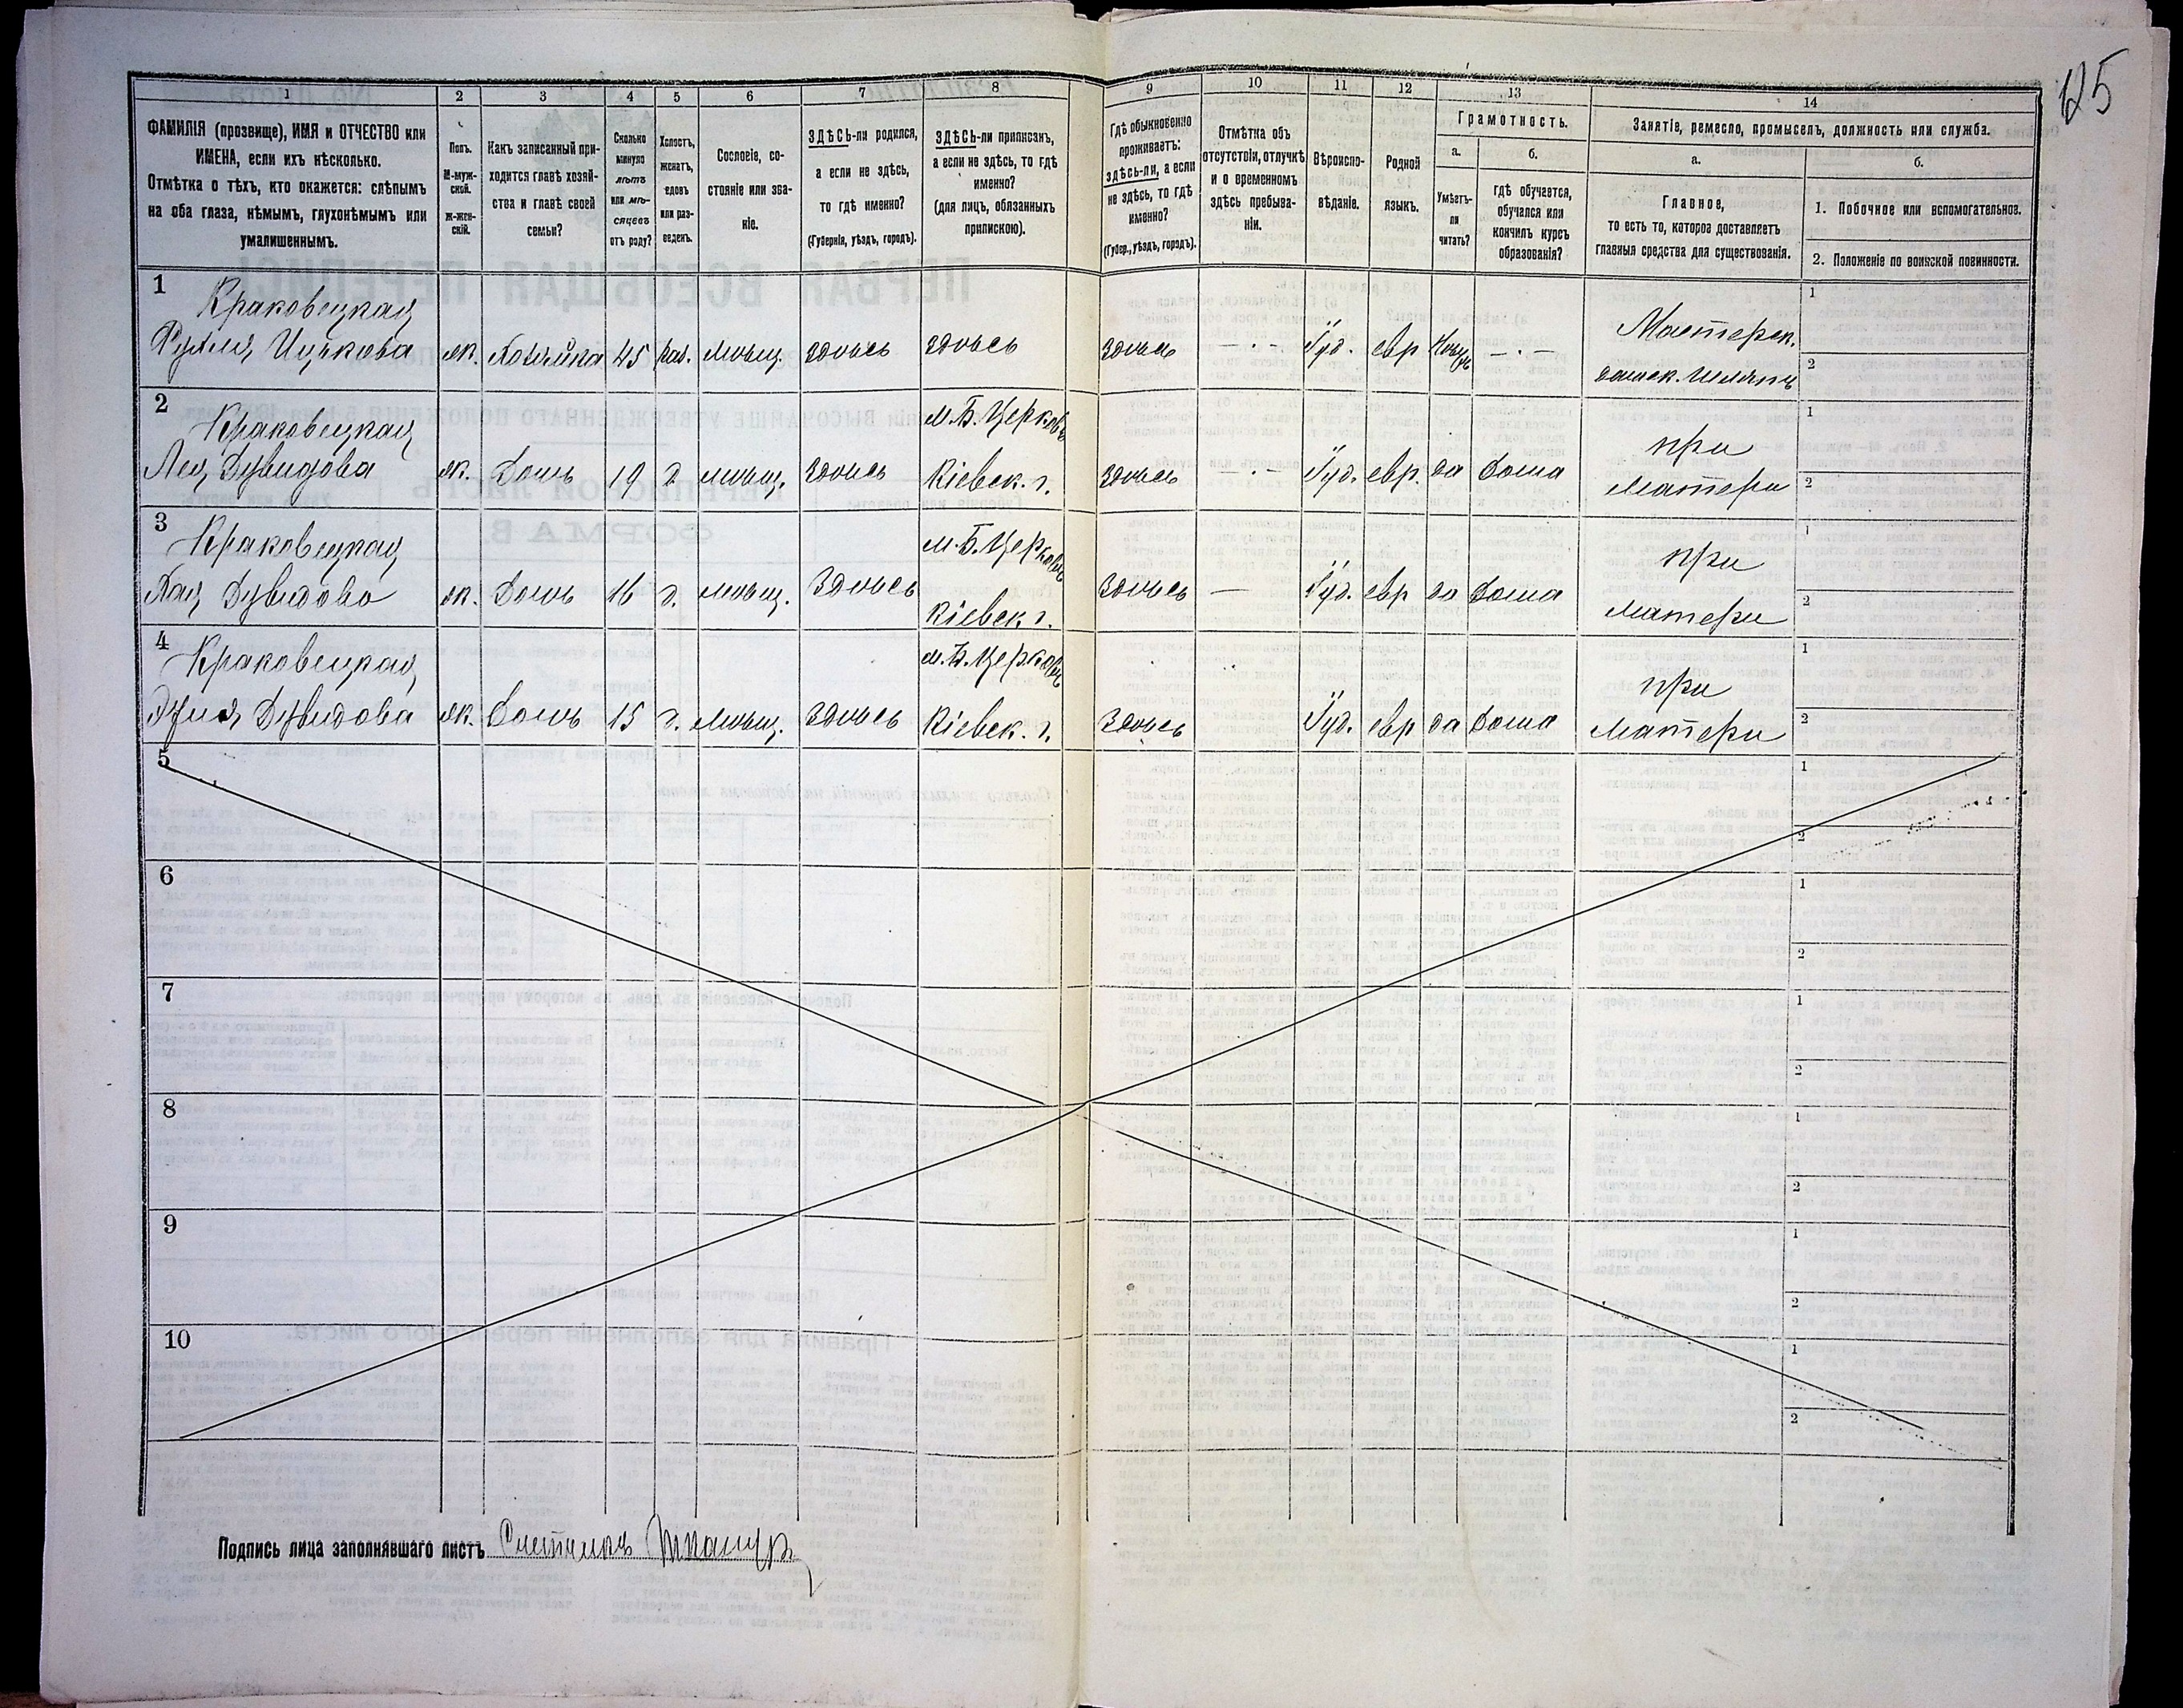 125
1
2
3
4
5
6
7
8
9
10
11
12
13
14
ФАМИЛІЯ (прозвище), ИМЯ и ОТЧЕСТВО или
ИМЕНА, если ихъ нѣсколько.
Отмѣтка о тѣхъ, кто окажется: слѣпымъ
на оба глаза, нѣмымъ, глухонѣмымъ или
умалишеннымъ.
Полъ.
М-муж-
ской.
ж-жен-
скій.
Какъ записанный при-
ходится главѣ хозяй-
ства и главѣ своей
семьи?
Сколько
минуло
лѣтъ
или мѣ-
сяцевъ
отъ роду?
Холостъ,
женатъ,
вдовъ
или раз-
веденъ.
Сословіе, со-
стояніе или зва-
ніе.
ЗДѢСЬ-ли родился,
а если не здѣсь,
то гдѣ именно?
(Губернія, уѣздъ, городъ).
ЗДѢСЬ-ли приписанъ,
а если не здѣсь, то гдѣ
именно?
(для лицъ, обязанныхъ
припискою).
Гдѣ обыкновенно
проживаетъ:
здѣсь-ли, а если
не здѣсь, то гдѣ
именно?
(Губер., уѣздъ, городъ).
Отмѣтка объ
отсутствіи, отлучкѣ
и о временномъ
здѣсь пребыва-
ніи.
Вѣроиспо-
вѣданіе.
Родной
языкъ.
Грамотность.
а.
б.
Умѣетъ-
ли
читать?
гдѣ обучается,
обучался или
кончилъ курсъ
образованія?
Занятіе, ремесло, промыселъ, должность или служба.
а.
б.
Главное,
то есть то, которое доставляетъ
главныя средства для существованія.
1. Побочное или вспомогательное.
2. Положеніе по воинской повинности.
1
Краковецкая
ж. Хозяйка 45 мѣщ. здѣсь здѣсь здѣсь —·— Іуд. евр —·—
Мастерск.
1
2
2
Краковецкая
м. Б. Церковь
Лея Дувидова ж. Дочь 19 д. мѣщ. здѣсь Кіевск. г. здѣсь —·— Іуд. евр. да дома
при
матери
1
2
3
Краковецкая
м. Б. Церковь
Дувидова ж. Дочь 16 д. мѣщ. здѣсь Кіевск. г. здѣсь — Іуд. евр да дома
при
матери
1
2
4
Краковецкая
м. Б. Церковь
Дувидова ж. Дочь 15 д. мѣщ. здѣсь Кіевск. г. здѣсь Іуд. евр да дома
при
матери
1
2
5
1
2
6
1
2
7
1
2
8
1
2
9
1
2
10
1
2
Подпись лица заполнявшаго листъ Счетчикъ